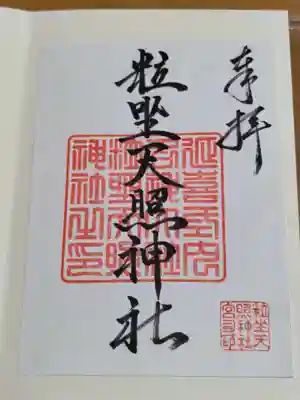 奉拝
粒坐天照神社
延喜式内
神社之印
粒坐天
照神社
宮司印